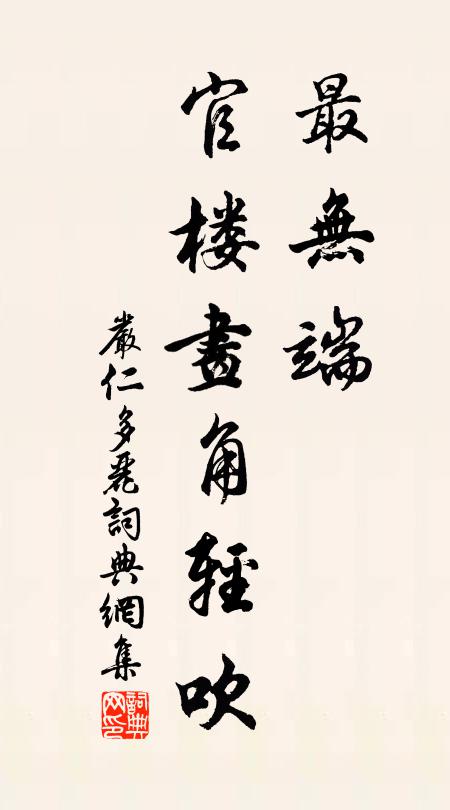 最無端
官楼畫角輕吹
嚴仁多麗詞典網集
詞典网印